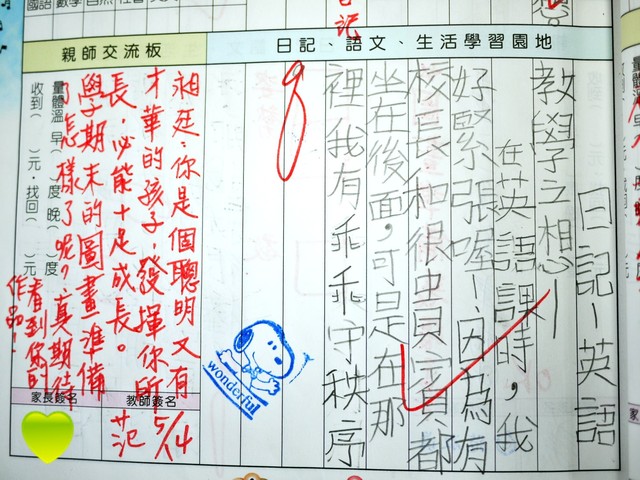 日記、語文、生活學習園地
日記—英語
教學之想—
在英語課時,我
好緊張喔!因為有
校長和很貴賓都
坐在後面,可是在那
裡我有乖乖守秩序
wonderful
親師交流板
你是個聰明又有
才華的孩子,發揮你所
長,必能十足成長。
學期末的圖畫準備
的怎樣了呢?真期待
看到你的
作品!
量體溫 早( )度 晚( )度
收到( )元,找回( )元
教師簽名
范 5/14
家長簽名